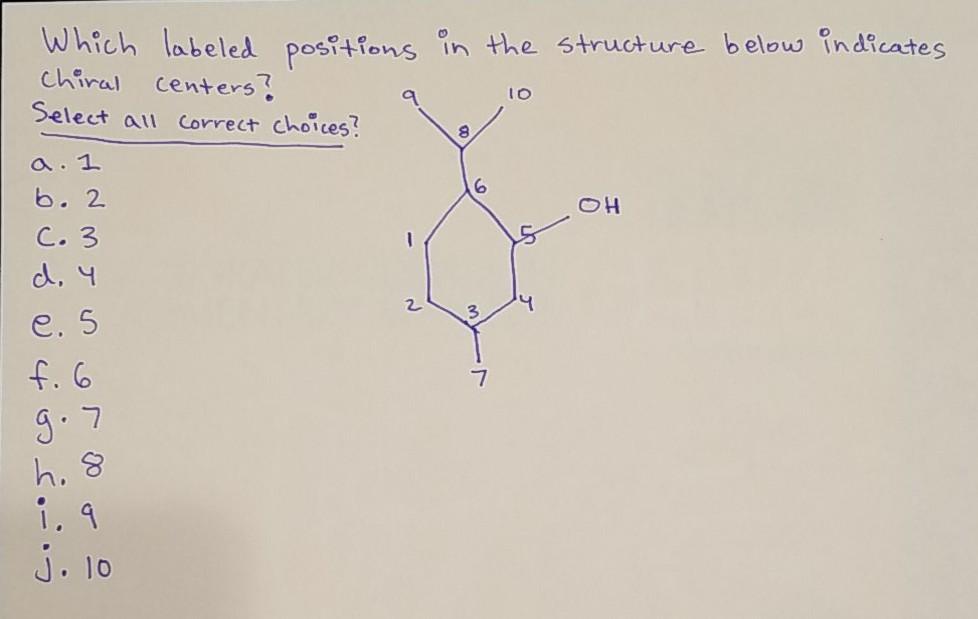 Which labeled positions in the structure below indicates
chiral centers?
Select all correct choices?
a. 1
b. 2
c. 3
d. 4
e. 5
f. 6
g. 7
h. 8
i. 9
j. 10
9 10
8
6
OH
1 5
2 3 4
7